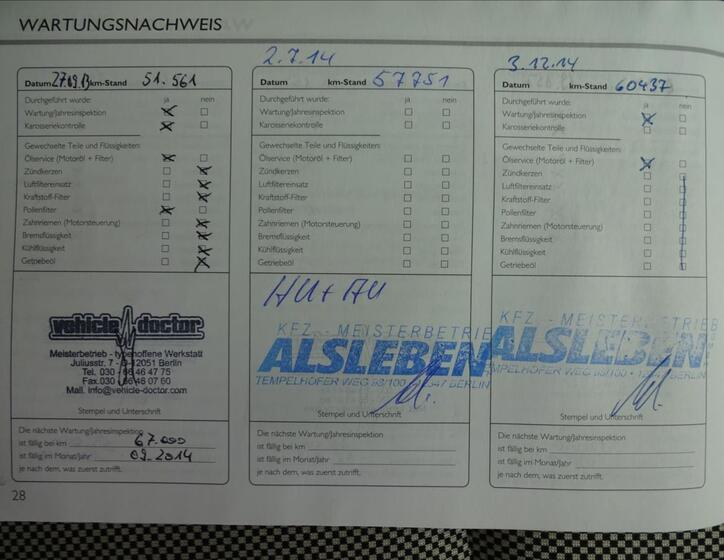 WARTUNGSNACHWEIS
Datum 27.09.13 km-Stand 51.561
Durchgeführt wurde: ja nein
Wartung/Jahresinspektion
Karosseriekontrolle
Gewechselte Teile und Flüssigkeiten:
Ölservice (Motoröl + Filter)
Zündkerzen
Luftfiltereinsatz
Kraftstoff-Filter
Pollenfilter
Zahnriemen (Motorsteuerung)
Bremsflüssigkeit
Kühlflüssigkeit
Getriebeöl
vehicle doctor
Meisterbetrieb - typenoffene Werkstatt
Juliusstr. 7 - 12051 Berlin
Tel. 030 - 66 46 47 75
Fax.030 - 66 46 07 60
Mail. info@vehicle-doctor.com
Stempel und Unterschrift
Die nächste Wartung/Jahresinspektion
ist fällig bei km 67.000
ist fällig im Monat/Jahr 09.2014
je nach dem, was zuerst zutrifft.
28
2.7.14
Datum km-Stand 57751
Durchgeführt wurde: ja nein
Wartung/Jahresinspektion
Karosseriekontrolle
Gewechselte Teile und Flüssigkeiten:
Ölservice (Motoröl + Filter)
Zündkerzen
Luftfiltereinsatz
Kraftstoff-Filter
Pollenfilter
Zahnriemen (Motorsteuerung)
Bremsflüssigkeit
Kühlflüssigkeit
Getriebeöl
HU + AU
KFZ - MEISTERBETRIE
ALSLEBEN
TEMPELHOFER WEG BERLIN
Stempel und Unterschrift
Die nächste Wartung/Jahresinspektion
ist fällig bei km
ist fällig im Monat/Jahr
je nach dem, was zuerst zutrifft.
3.12.14
Datum km-Stand 60437
Durchgeführt wurde: ja nein
Wartung/Jahresinspektion
Karosseriekontrolle
Gewechselte Teile und Flüssigkeiten:
Ölservice (Motoröl + Filter)
Zündkerzen
Luftfiltereinsatz
Kraftstoff-Filter
Pollenfilter
Zahnriemen (Motorsteuerung)
Bremsflüssigkeit
Kühlflüssigkeit
Getriebeöl
KFZ - MEISTERBETRIEB
ALSLEBEN
MPELHOFER WEG BERLIN
Stempel und Unterschrift
Die nächste Wartung/Jahresinspektion
ist fällig bei km
ist fällig im Monat/Jahr
je nach dem, was zuerst zutrifft.